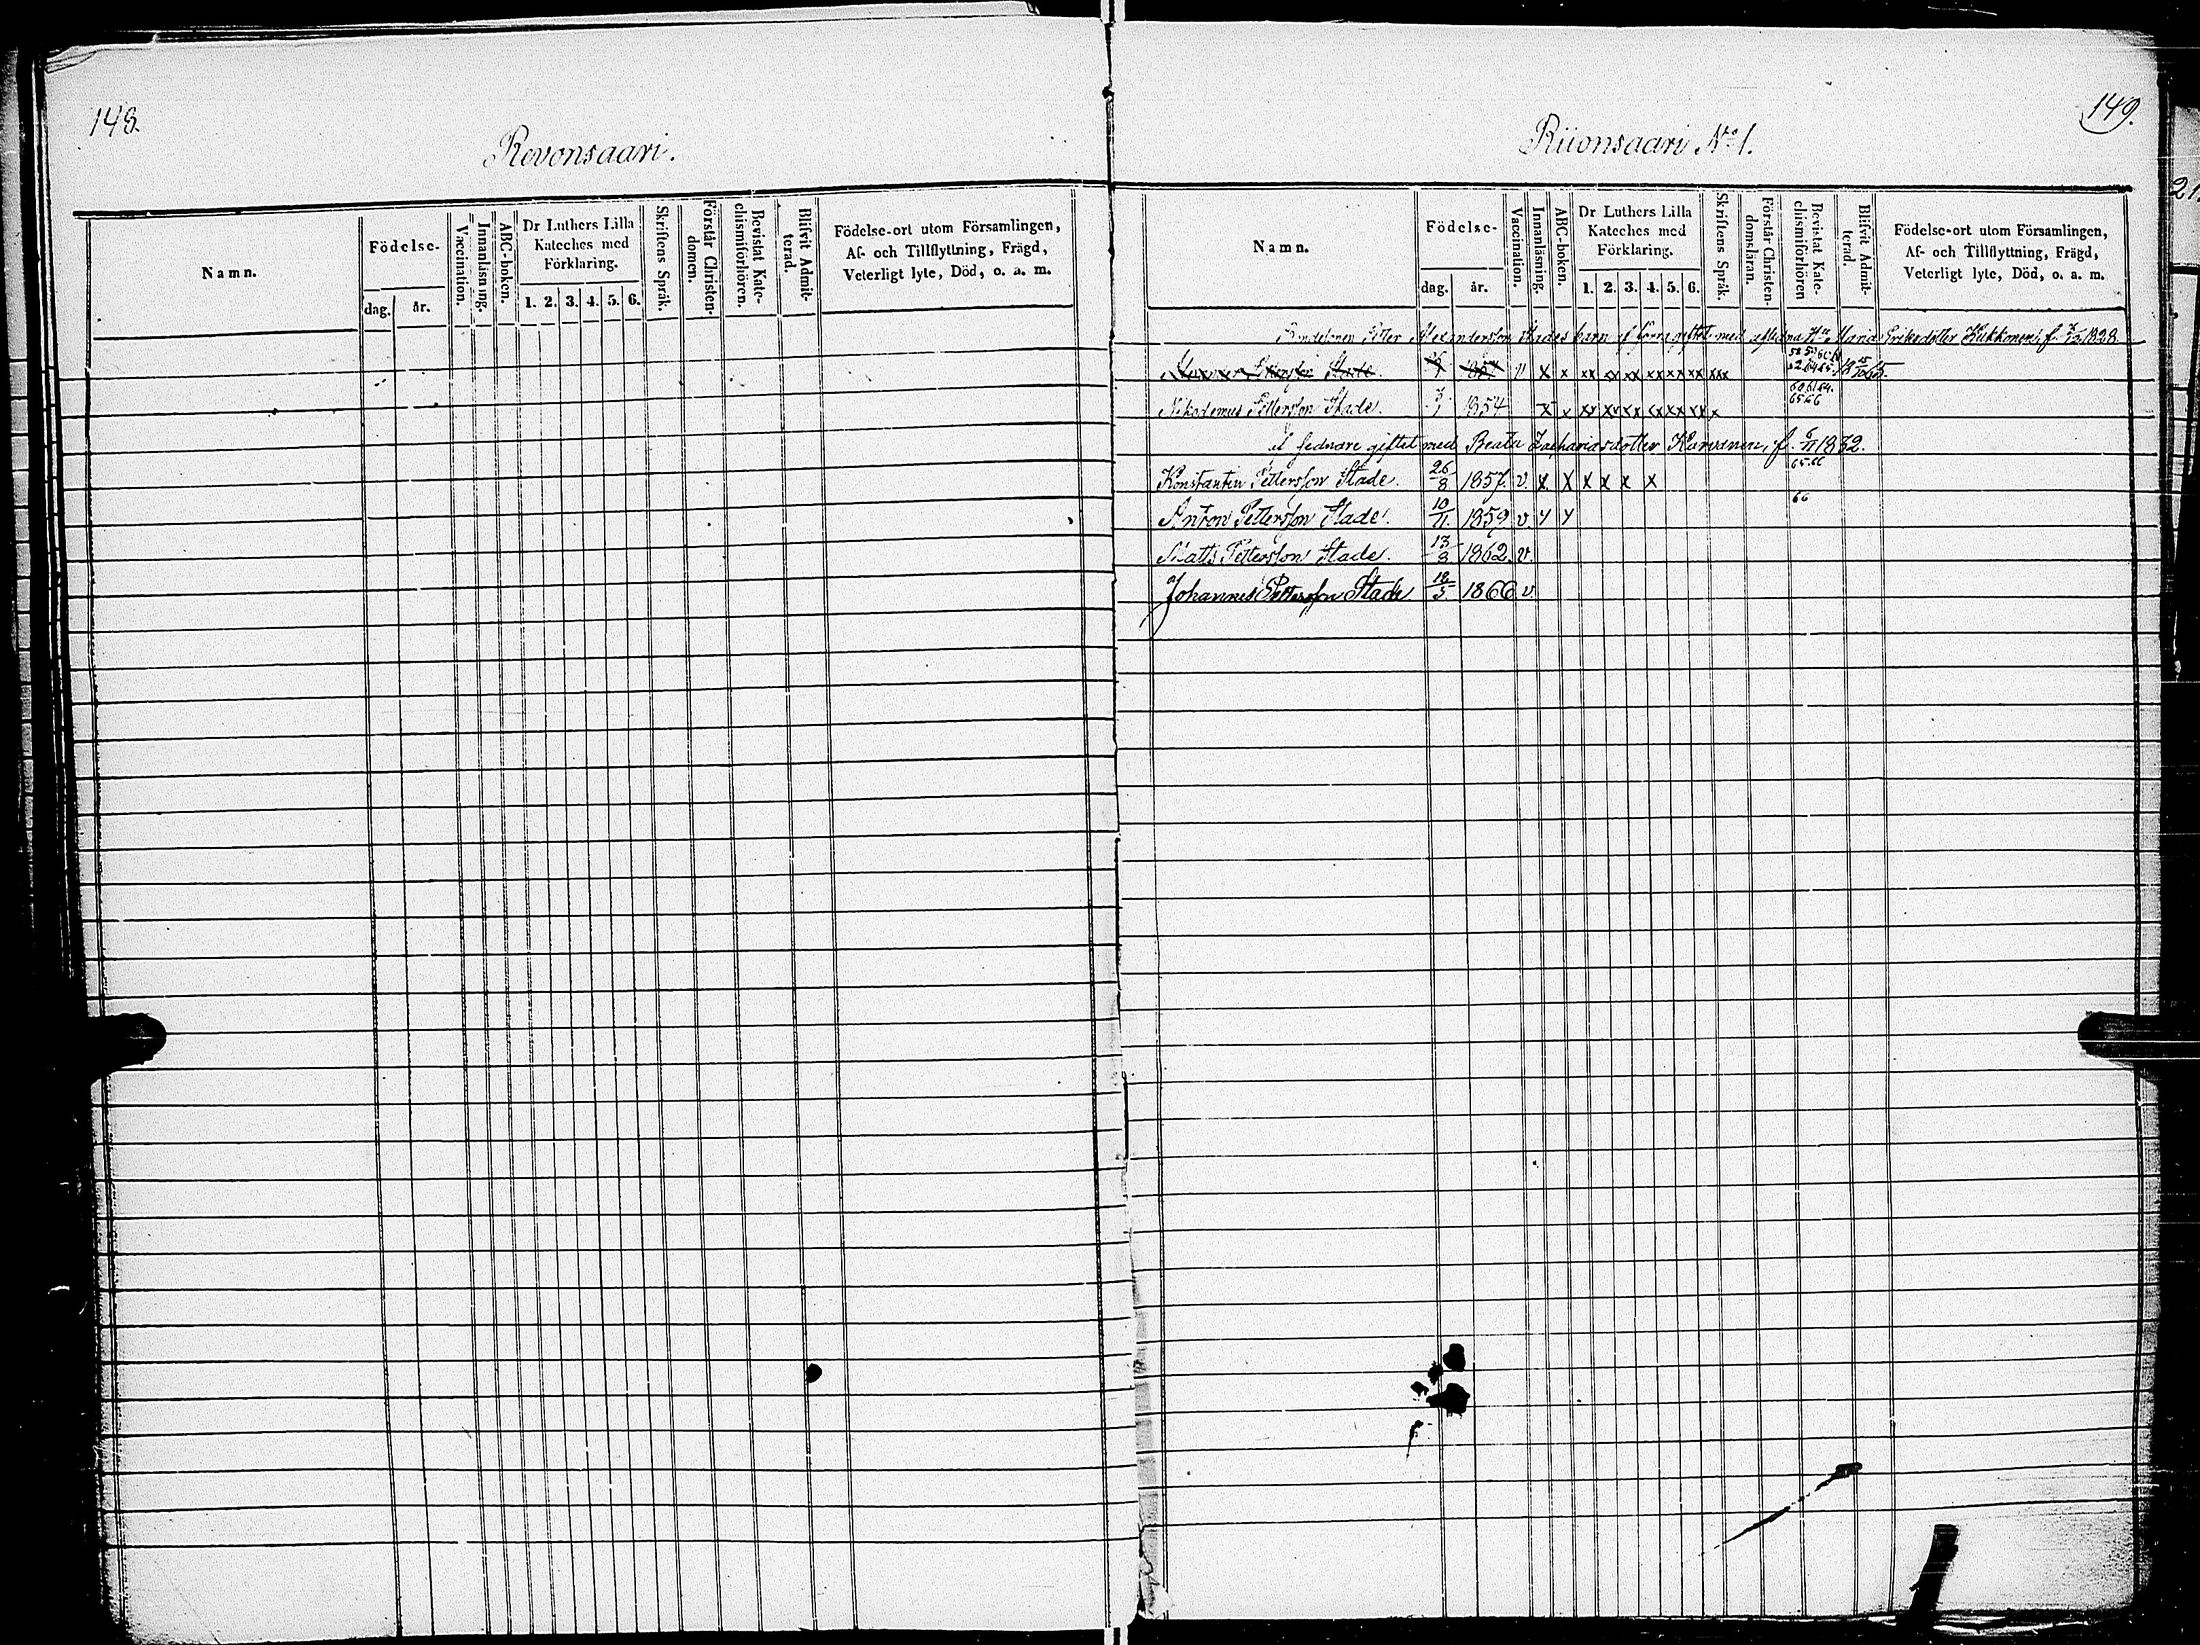 148.
Revonsaari.
Namn.
Födelse-
dag. år.
Vaccination.
Innanläsning.
ABC-boken.
Dr Luthers Lilla
Kateches med
Förklaring.
1. 2. 3. 4. 5. 6.
Skriftens Språk.
Förstår Christen-
domen.
Bevistat Kate-
chismiförhören.
Blifvit Admit-
terad.
Födelse-ort utom Församlingen,
Af- och Tillflyttning, Frägd,
Veterligt lyte, Död, o. a. m.
149.
Riionsaari No 1.
Namn.
Födelse-
dag. år.
Vaccination.
Innanläsning.
ABC-boken.
Dr Luthers Lilla
Kateches med
Förklaring.
1. 2. 3. 4. 5. 6.
Skriftens Språk.
Förstår Christen-
domsläran.
Bevistat Kate-
chismiförhören
Blifvit Admit-
terad.
Födelse-ort utom Församlingen,
Af- och Tillflyttning, Frägd,
Veterligt lyte, Död, o. a. m.
Bondesonen Petter Alexandersson Stades barn af förra giftet med aflidna Hu Maria Eriksdotter Kukkonen, f. 1828
Stade. v x x xx xx xx xx xx xx xxx
Nikodemus Pettersson Stade. 3/1 1854 x x xx xx xx xx xx xx x 60 61 64. 65 66
af sednare giftet med Beata Zachariasdotter Karvanen, f. 6/11 1832.
Konstantin Pettersson Stade. 26/8 1857. v. x x x x x x 65.66
Anton Pettersson Stade. 10/11. 1859 v. y y 66
Matts Pettersson Stade. 13/8 1862. v.
Johannes Pettersson Stade 18/5. 1866 v.